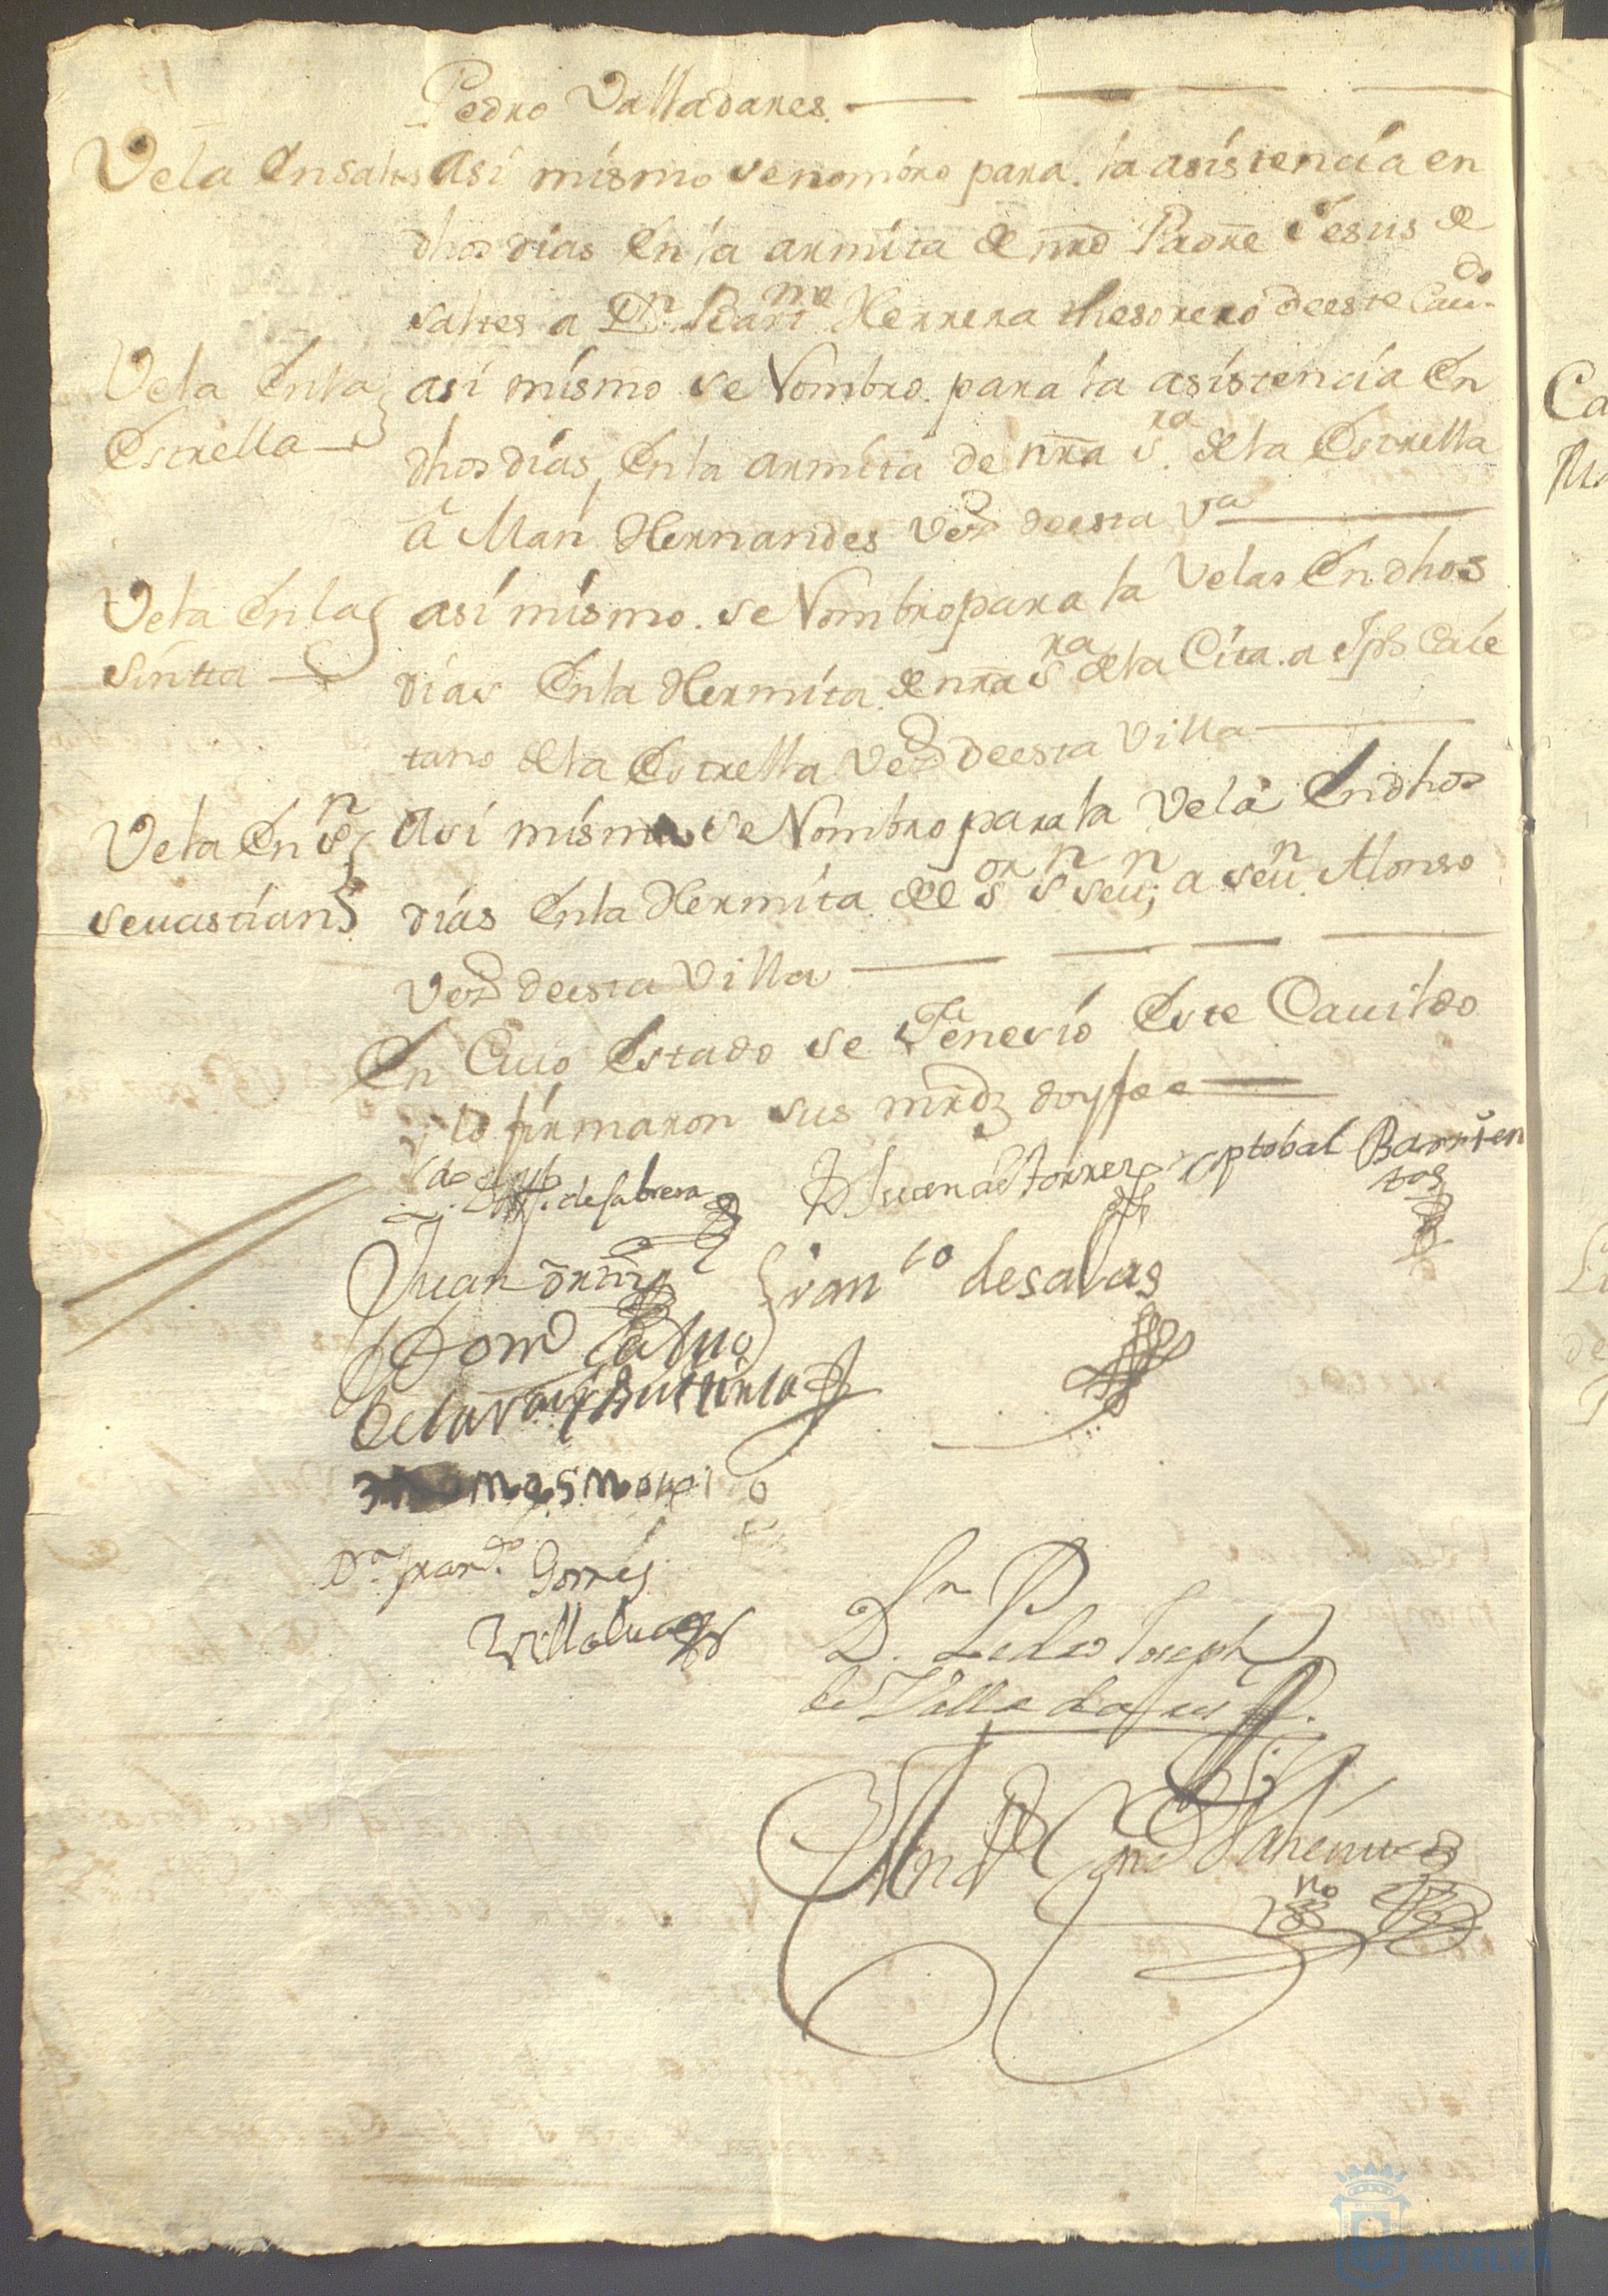 Pedro Valladares.
Vela En saltes
Asi mismo se nombro para. la asistencia en
dhos dias En la armita de nro Padre Jesus de
saltes a Dn. Barme Herrera thesorero deeste Cavdo.
Vela En la
Estrella
asi mismo se Nombro. para la asistencia En
dhos dias, En la armita de nra sra. de la Estrella
â Man Hernandes Vez deesta Va
Vela En la
Sintta
asi mismo. se Nombro para la Velas En dhos
dias En la Hermita de nra sra de la Cita. a Jph Caie
tano de la Estrella Vez deesta Villa
Vela En Sn
Sevastian
Asi mismo se Nombro para la Vela En dhos
dias En la Hermita de el sor sn sevn; a sevn. Alonso
Vez deesta Villa
En Cuio Estado se Fenesio Este Cavildo
y lo firmaron sus mrdz doy fee
Juan
Xptobal Barrien
tos
Franco de salas
Dn. Franco. Gomes
Villalua
Dn. Pedro Joseph
de Valladares
HUELVA